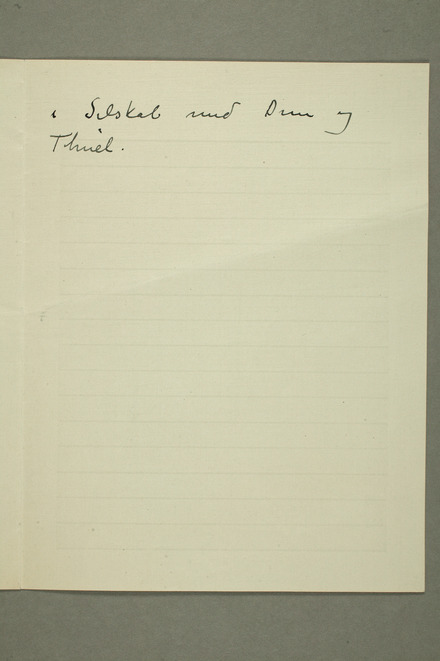 i Selskab med Dem og
Thiel.